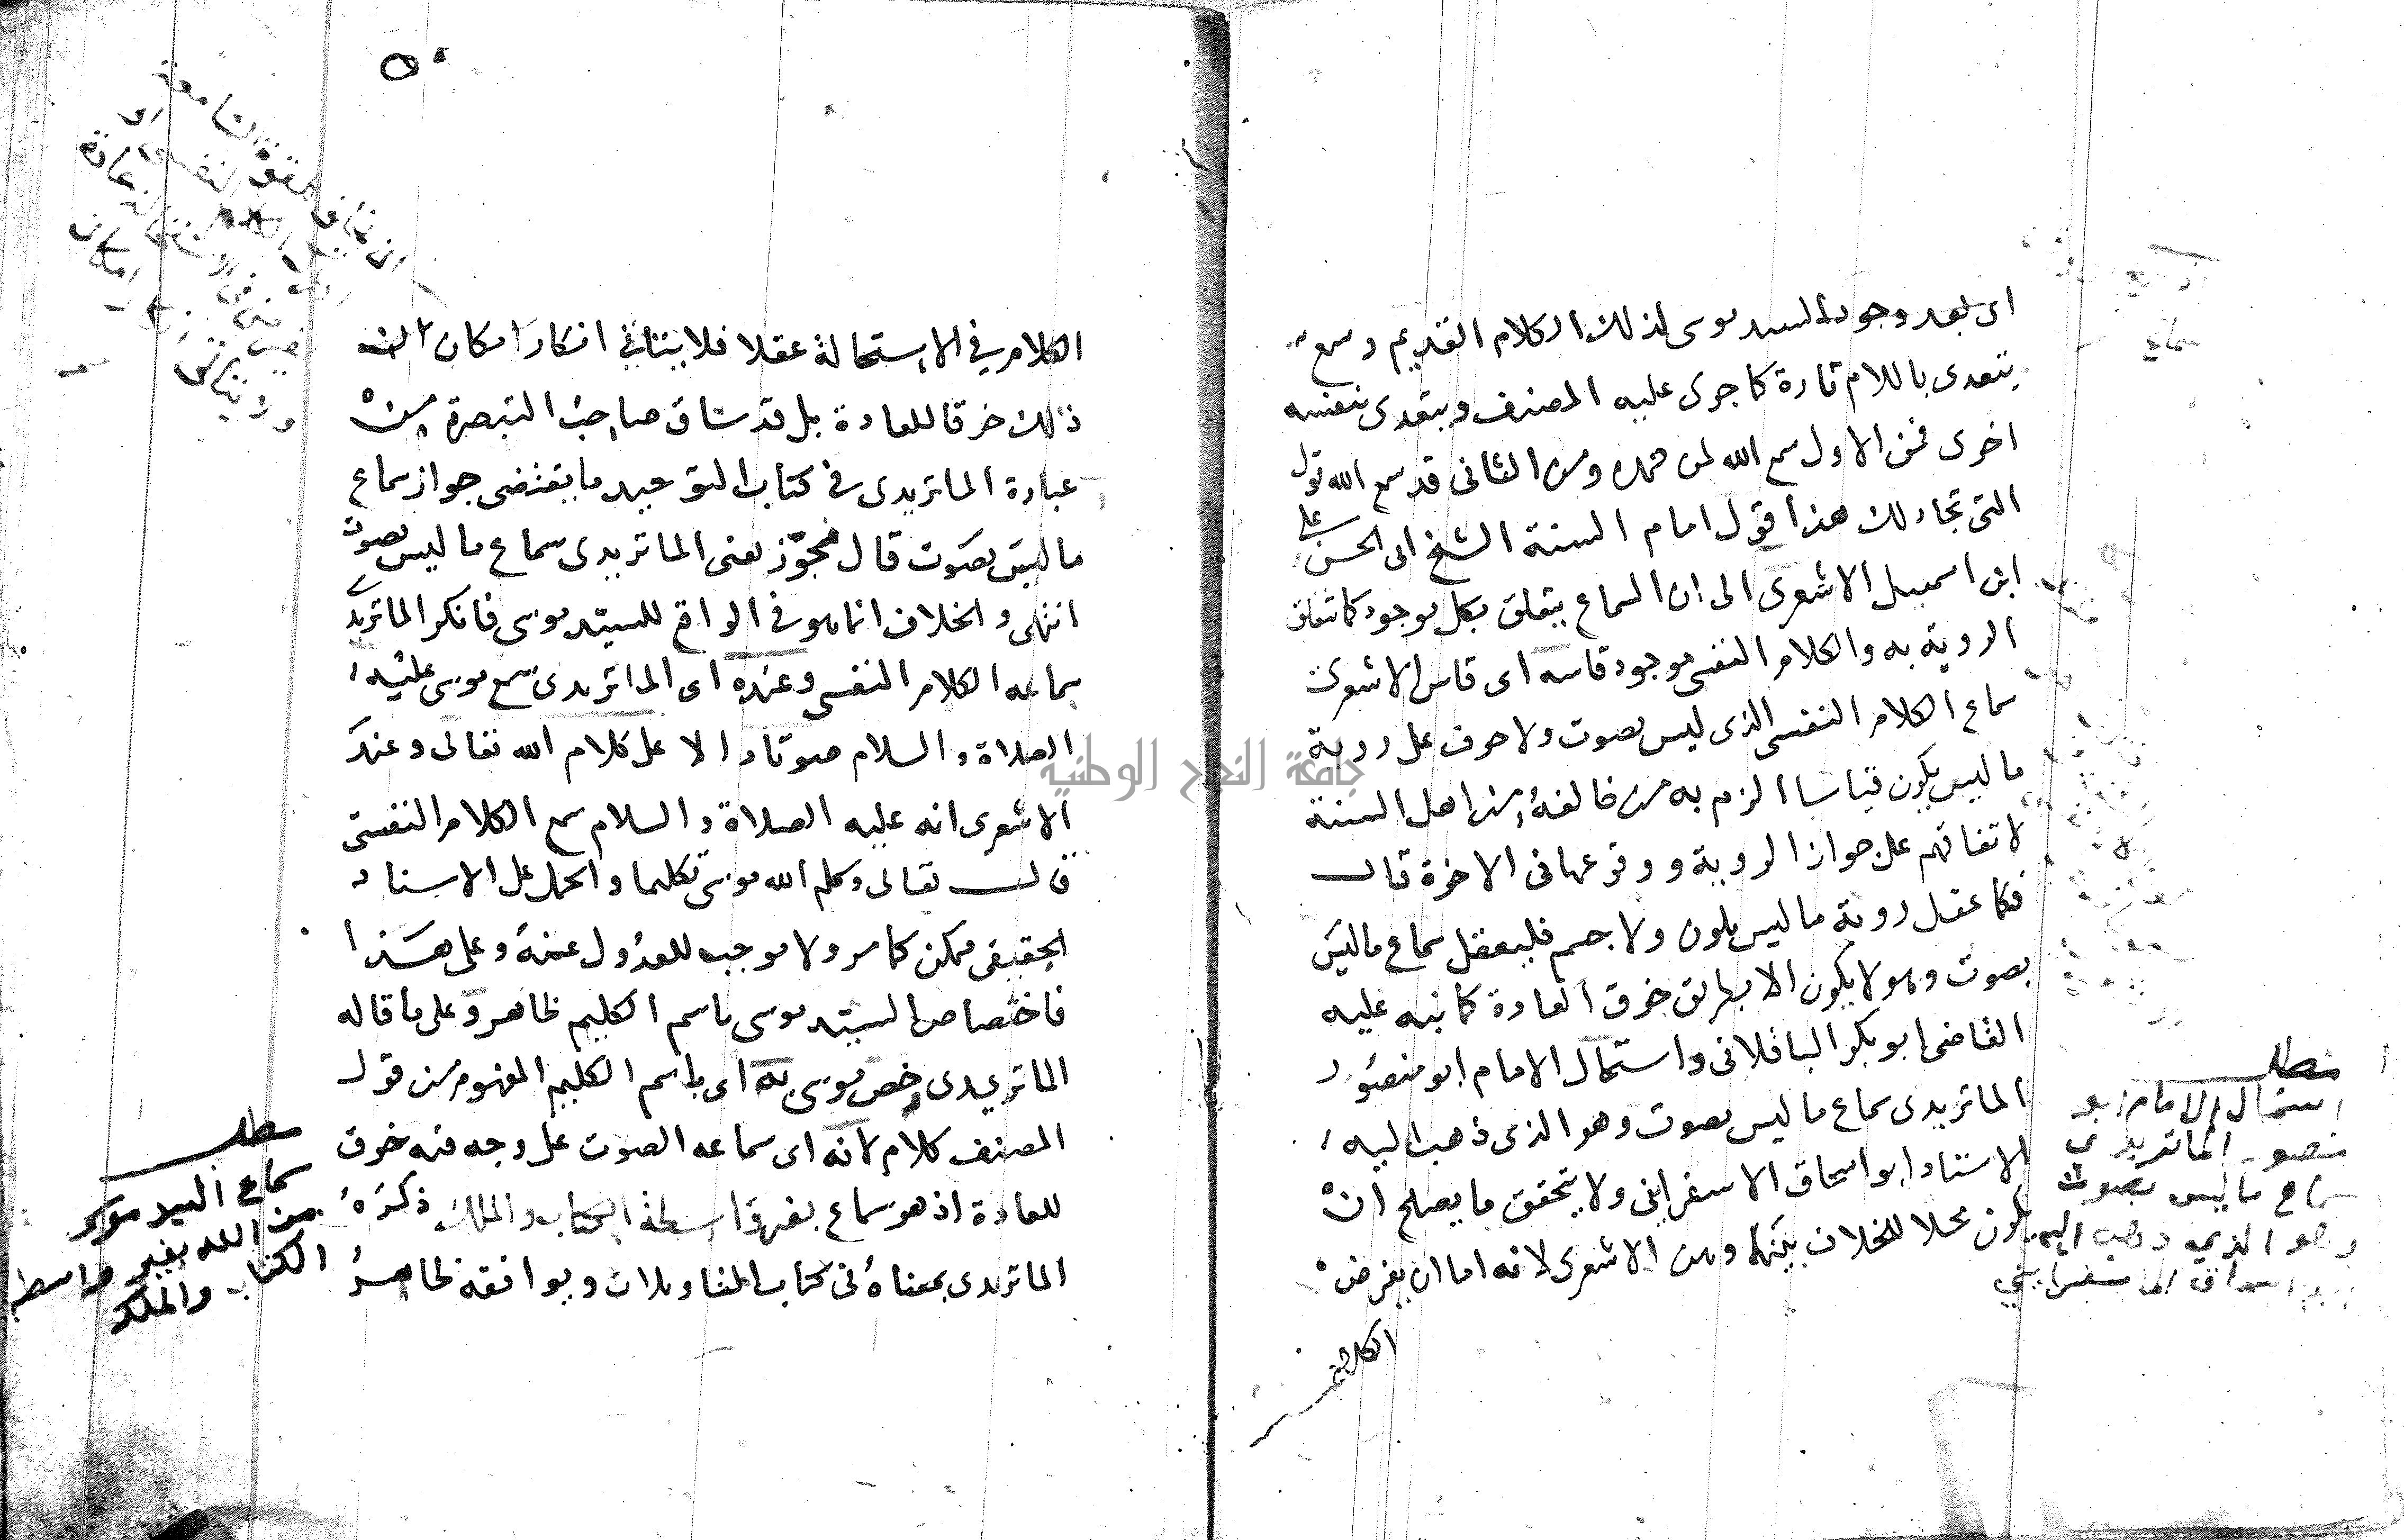 اى بعد وجود السيد موسى لذلك الكلام القديم وسمع
يتعدى باللام تارة كما جرى عليه المصنف ويتعدى بنفسه
اخرى فمن الاول سمع الله لمن حمده ومن الثانى قد سمع الله قول
التى تجادلك هذا قول امام السنة الشيخ ابى الحسن على
ابن اسمعيل الاشعرى الى ان السماع يتعلق بكل موجود كما تتعلق
الروية به والكلام النفسى موجود قاسه اى قاس الاشعرى
سماع الكلام النفسى الذى ليس بصوت ولا حرف على روية
ما ليس يكون قياسا الزم به من خالفه من اهل السنة
لاتفاقهم على جواز الروية ووقوعها فى الاخرة قال
فكما عقل روية ما ليس بلون ولا جسم فليعقل سماع ما ليس
بصوت وهو لا يكون الا بطريق خرق العادة كما نبه عليه
القاضى ابو بكر الباقلانى واستحال الامام ابو منصور
الماتريدى سماع ما ليس بصوت وهو الذى ذهب اليه
الاستاد ابو اسحاق الاسفراينى ولا يتحقق ما يصلح ان
يكون محلا للخلاف بينهما وبين الاشعرى لانه اما ان يفرض
الكلام
مطلب
استحال الامام ابو
منصور الماتريدى
سماع ما ليس بصوت
وهو الذي ذهب اليه
ابو اسحاق الاسفرايني
جامعة النجاح الوطنية
٥٠
الكلام في الاستحالة عقلا فلا يتأتي انكار امكان
ذلك خرقا للعادة بل قد ساق صاحب التبصرة من
عبارة الماتريدى فى كتاب التوحيد ما يقتضى جواز سماع
ما ليس بصوت قال فجوّز يعنى الماتريدى سماع ما ليس بصوت
انتهى والخلاف انما هو فى الواقع للسيّد موسى فانكر الماتريدى
سماعه الكلام النفسى وعنده اى الماتريدى سمع موسى عليه
الصلاة والسلام صوتا دالا على كلام الله تعالى وعند
الاشعرى انه عليه الصلاة والسلام سمع الكلام النفسى
قال تعالى وكلم الله موسى تكليما والحمل على الاسناد
الحقيقى ممكن كما مر ولا موجب للعدول عنه وعلى هذا
فاختصاص السيّد موسى باسم الكليم ظاهر وعلى ما قاله
الماتريدى خص موسى به اى باسم الكليم المفهوم من قول
المصنف كلام لانه اى سماعه الصوت على وجه فيه خرق
للعادة اذ هو سماع بغير واسطة الكتاب والملك ذكره
الماتريدى بمعناه فى كتاب التاويلات ويوافقه ظاهر
مطلب
سماع السيد موسى
من الله بغير واسطة
الكتاب والملك